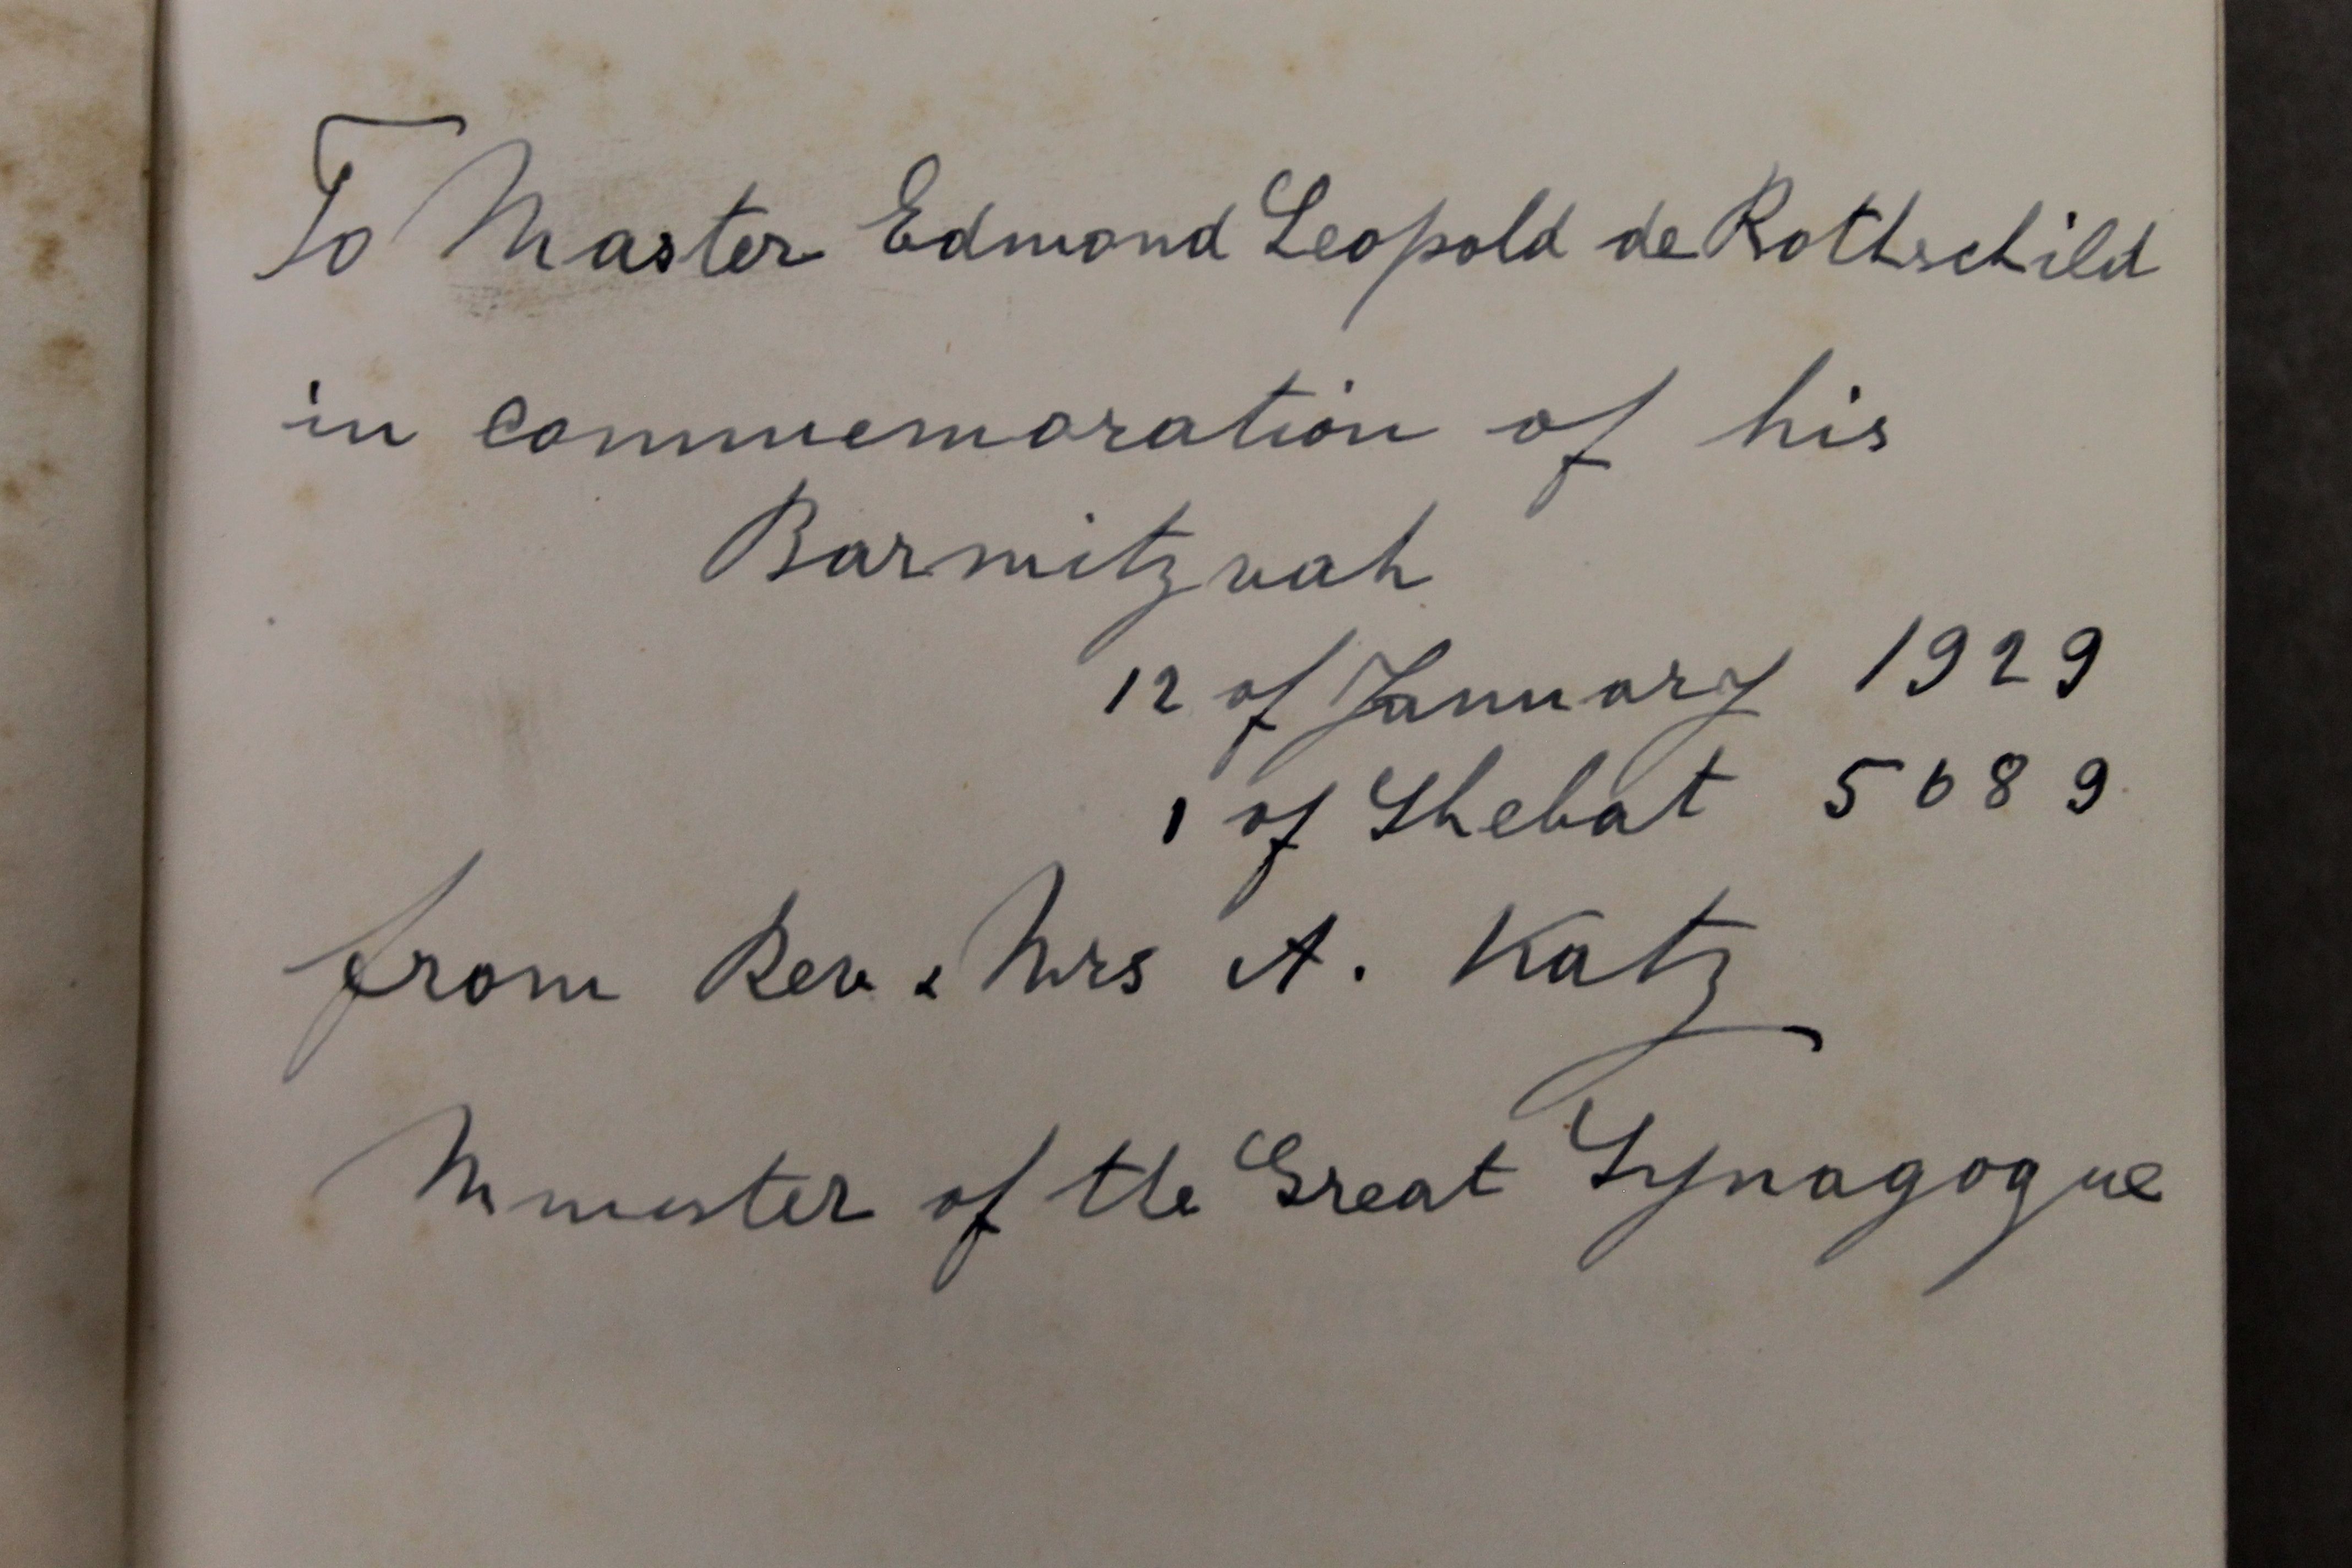 To Master Edmond Leopold de Rothschild
in commemoration of his
Barmitzvah
12 of January 1929
1 of Shebat 5689
from Rev. & Mrs A. Katz
Minister of the Great Synagogue